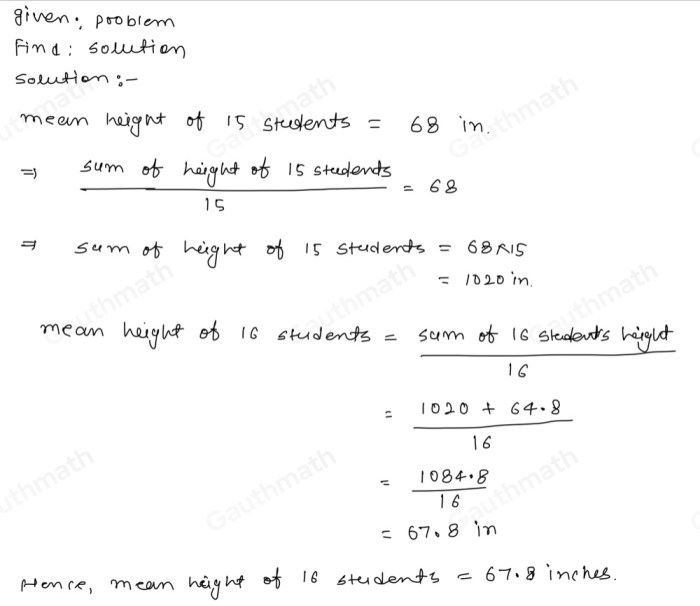 given:, problem
Find: solution
solution:-
mean height of 15 students = 68 in.
⇒ sum of height of 15 students / 15 = 68
⇒ sum of height of 15 students = 68×15
= 1020 in.
mean height of 16 students = sum of 16 students height / 16
= 1020 + 64.8 / 16
= 1084.8 / 16
= 67.8 in
Hence, mean height of 16 students = 67.8 inches.
Gauthmath